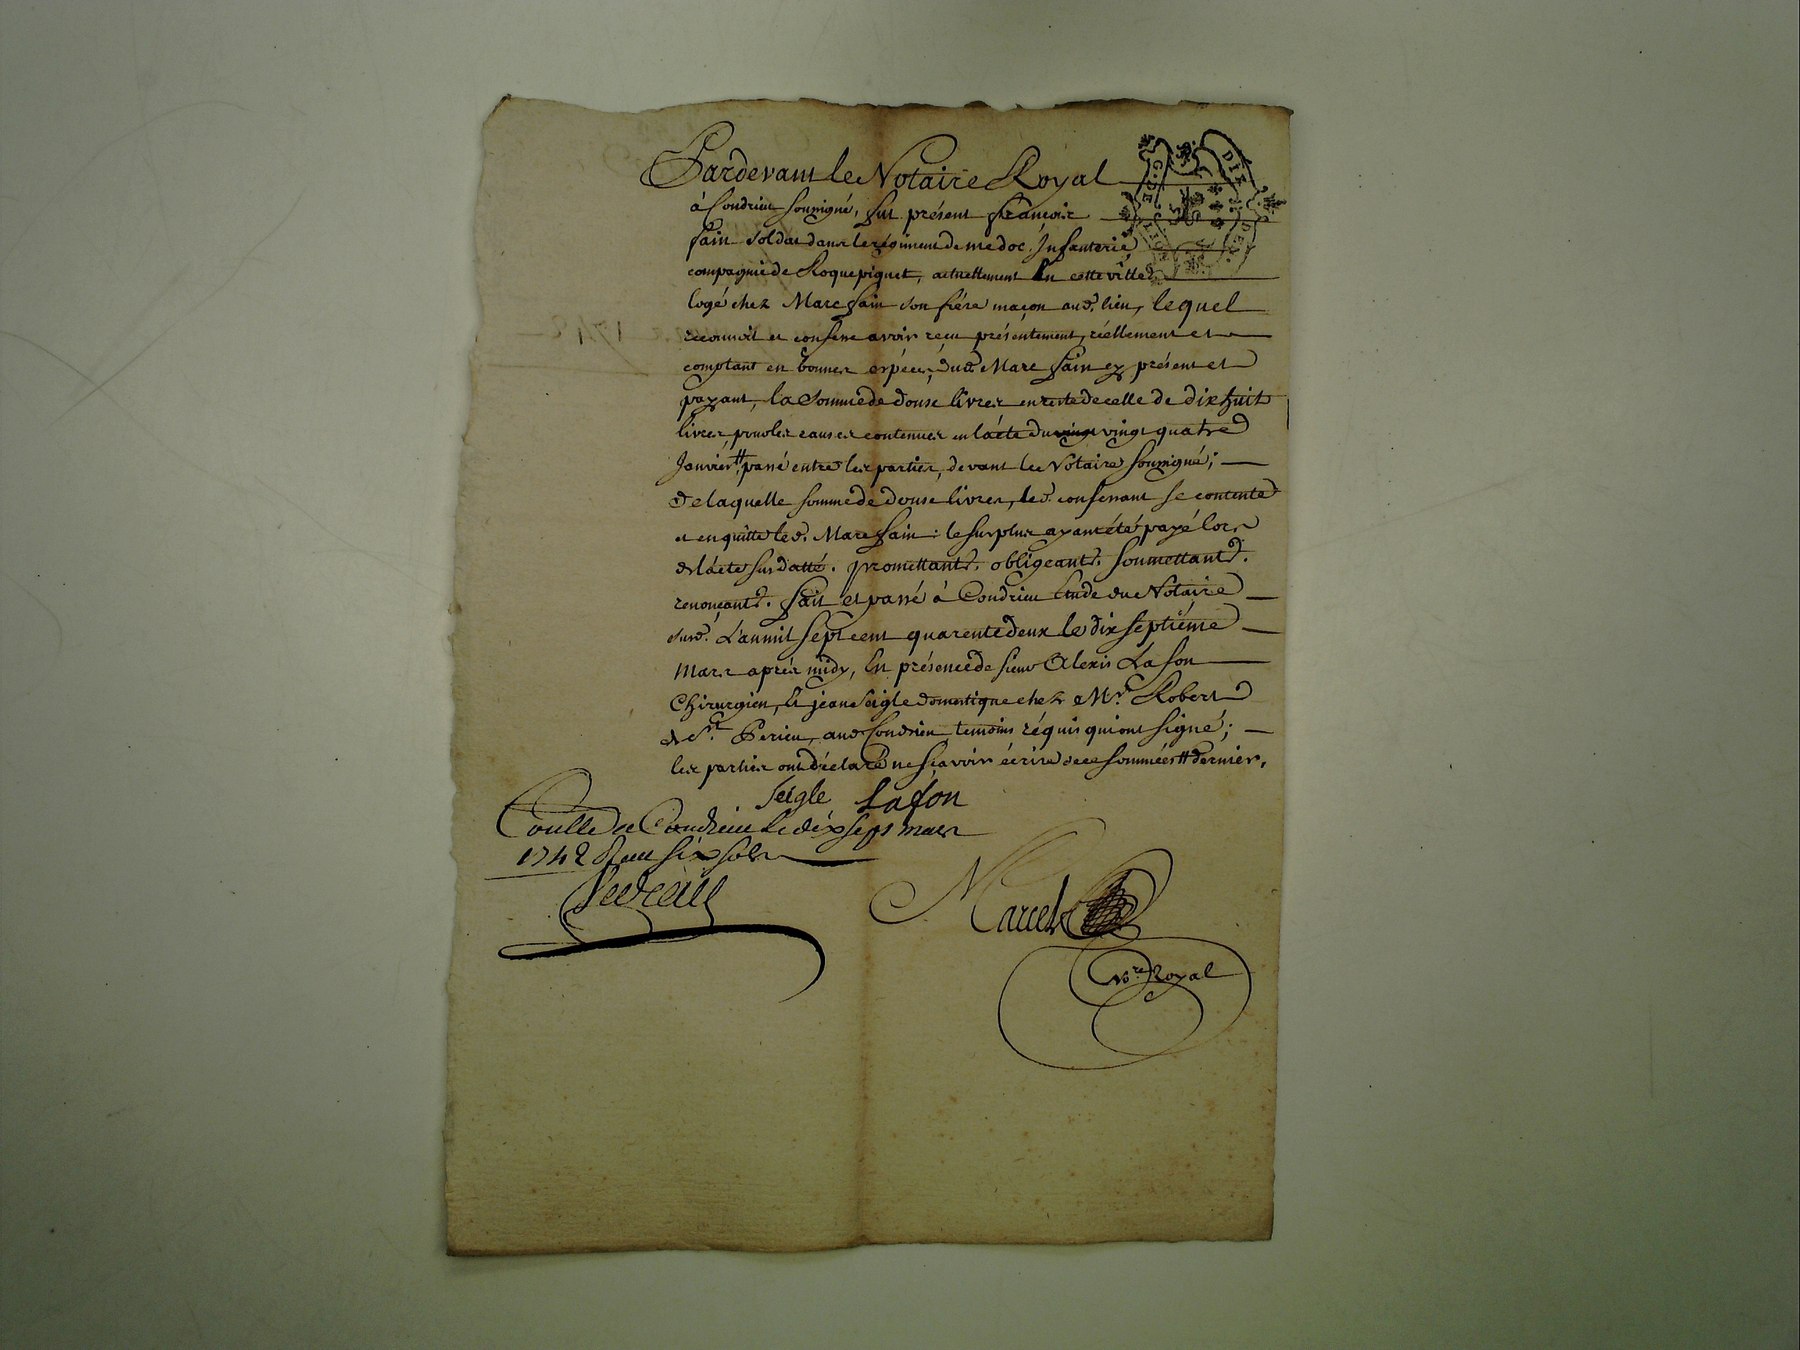 Pardevant le Notaire Royal
à Condrieu soussigné, fut présent françois
fain soldat dans le régiment de medoc Infanterie
compagnie de Roquepiquet, actuellement En cette ville
logé chez Marc fain son frére maçon aud. lieu, lequel
reconnoit et confesse avoir reçu présentement, réellement et
comptant en bonnes espéces, dud. Marc fain cy présent et
payant, la somme de douse livres en reste de celle de dix huit
livres pour les causes contenues en lácte du vingt vingt quatre
Janvier # passé entre les parties, devant le Notaire soussigné;
de laquelle somme de douse livres, led. confessant se contente
et en quitte led. Marc fain: le surplus ayant été payé lors
de lácte susdatté. promettant d. obligeant d. soumettant d.
renonçant d. fait et passé à Condrieu Etude du Notaire
susd. L'an mil sept cent quarente deux le dix septiéme
mars aprés midy, En présence de sieur Alexis Lafon
Chirurgien, Et jean Seigle domestique chez Mr. Robert
de St. Perieu, aud Condrieu temoins réquis qui ont signé;
les parties ont déclaré ne sçavoir écrire de ce sommées # dernier.
Seigle Lafon
Conllé a Condrieu le dix sept mars
1742 Reçu six sols
Marcel
Nre. Royal
DIX